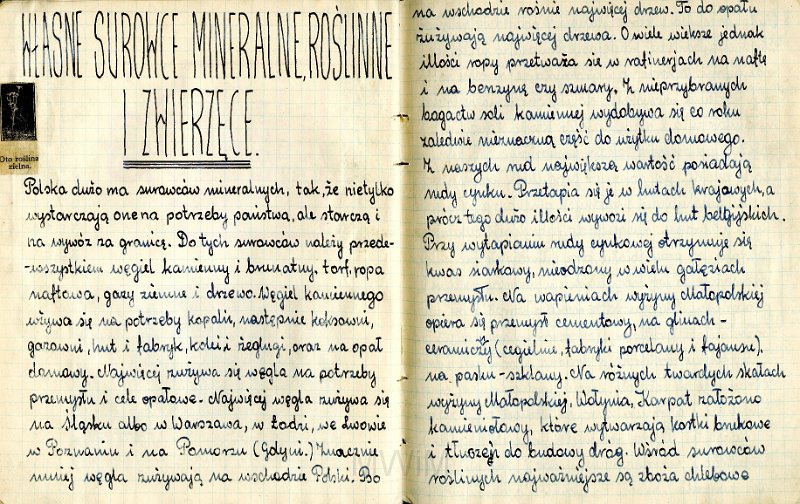 WŁASNE SUROWCE MINERALNE, ROŚLINNE
I ZWIERZĘCE.
Oto roślina
zielna.
Polska dużo ma surowców mineralnych, tak, że nietylko
wystarczają one na potrzeby państwa, ale starczą i
na wywóz za granicę. Do tych surowców należy przede-
-wszystkiem węgiel kamienny i brunatny, torf, ropa
naftowa, gazy ziemne i drzewo. Węgiel kamiennego
używa się na potrzeby kopalń, następnie koksowni,
gazowni, hut i fabryk, kolei i żeglugi, oraz na opał
domowy. Najwięcej zużywa się węgla na potrzeby
przemysłu i cele opałowe. Najwięcej węgla zużywa się
na Śląsku albo w Warszawa, w Łodzi, we Lwowie
w Poznaniu i na Pomorzu (Gdyni.) Znacznie
mniej węgla zużywają na wschodzie Polski. Bo
na wschodzie rośnie najwięcej drzew. To do opału
zużywają najwięcej drzewa. O wiele większe jednak
illości ropy przetważa się w rafinerjach na naftę
i na benzynę czy smary. Z nieprzybranych
bogactw soli kamiennej wydobywa się co roku
zaledwie nieznaczną część do użytku domowego.
Z naszych rud największą wartość posiadają
rudy cynku. Przetapia się je w hutach krajowych, a
prócz tego dużo illości wywozi się do hut belgijskich.
Przy wytapianiu rudy cynkowej otrzymuje się
kwas siarkowy, nieodzony w wielu gałęziach
przemysłu. Na wapieniach wyżyny Małopolskiej
opiera się przemysł cementowy, na glinach -
ceramiczny (cegielnie, fabryki porcelany i fajansu).
na piasku - szklany. Na różnych twardych skałach
wyżyny Małopolskiej, Wołynia, Karpat założono
kamieniołowy, które wytwarzają kostki brukowe
i tłuczeń do budowy dróg. Wśród surowców
roślinnych najważniejsze są zboża chlebowe